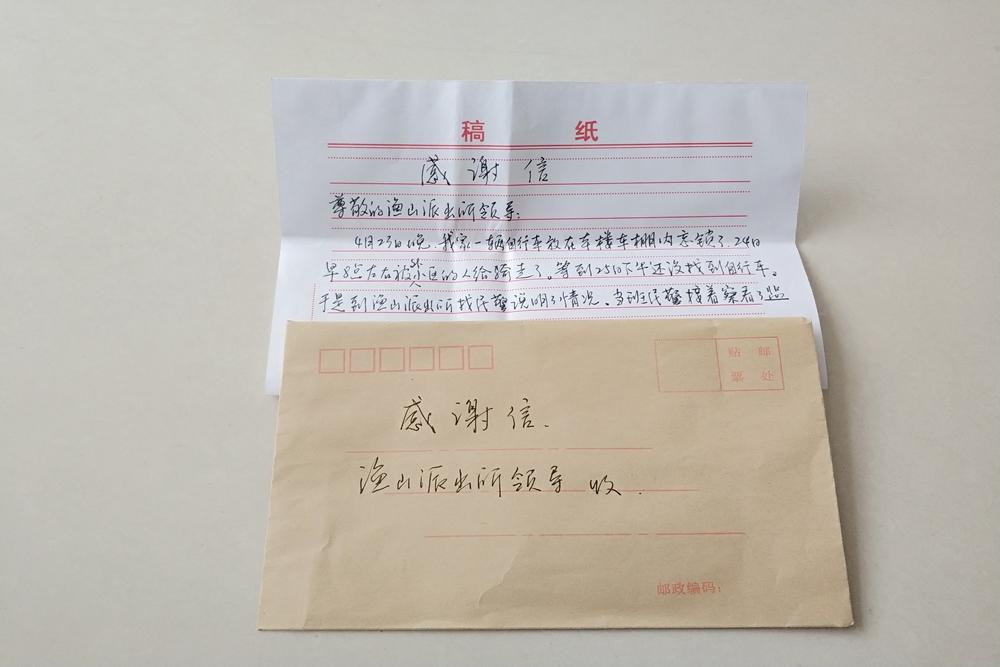 稿 纸
感谢信
尊敬的渔山派出所领导:
4月23日晚,我家一辆自行车放在本楼车棚内忘锁了,24日
早8点左右被小区的人给骑走了。等到25日下午还没找到自行车。
于是到渔山派出所找民警说明了情况。当班民警接着察看了监
贴 邮
票 处
感谢信.
渔山派出所领导 收.
邮政编码: